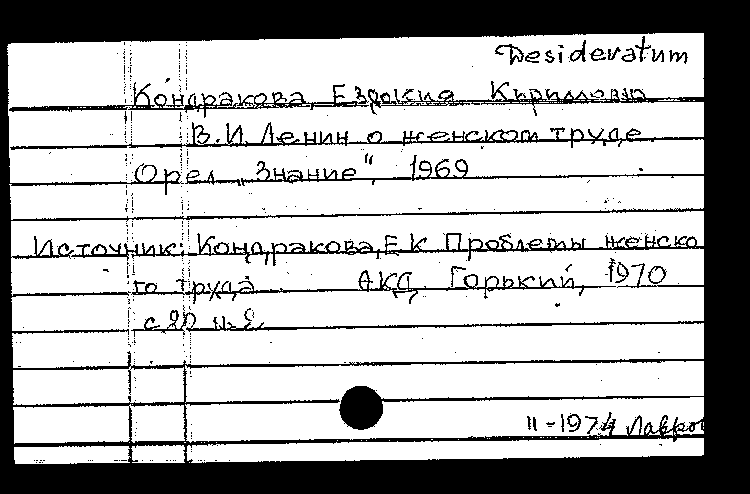 Desideratum
Кондракова, Евдокия Кирилловна
В.И. Ленин о женском труде
Орел „Знание", 1969
Источник: Кондракова, Е.К Проблемы женско
го труда АКД Горький, 1970
с 20 н. 2
II - 1974 Лавров